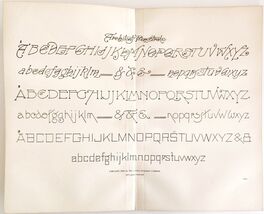 ABCDEFGHIJKLMNOPQRSTUVWXYZ
abcdefghijklm &&& nopqrstuvwxyz
ABCDEFGHIJKLMNOPQRSTUVWXYZ
abcdefghijklm &&& nopqrstuvwxyz
ABCDEFGHIJKLMNOPQRSTUVWXYZ&
abcdefghijklmnopqrstuvwxyz